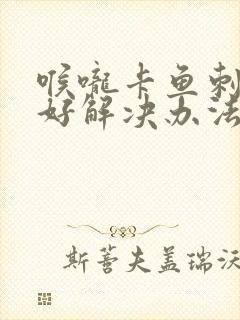 喉咙卡鱼刺
好解决办法
斯蒈夫盖瑞沃